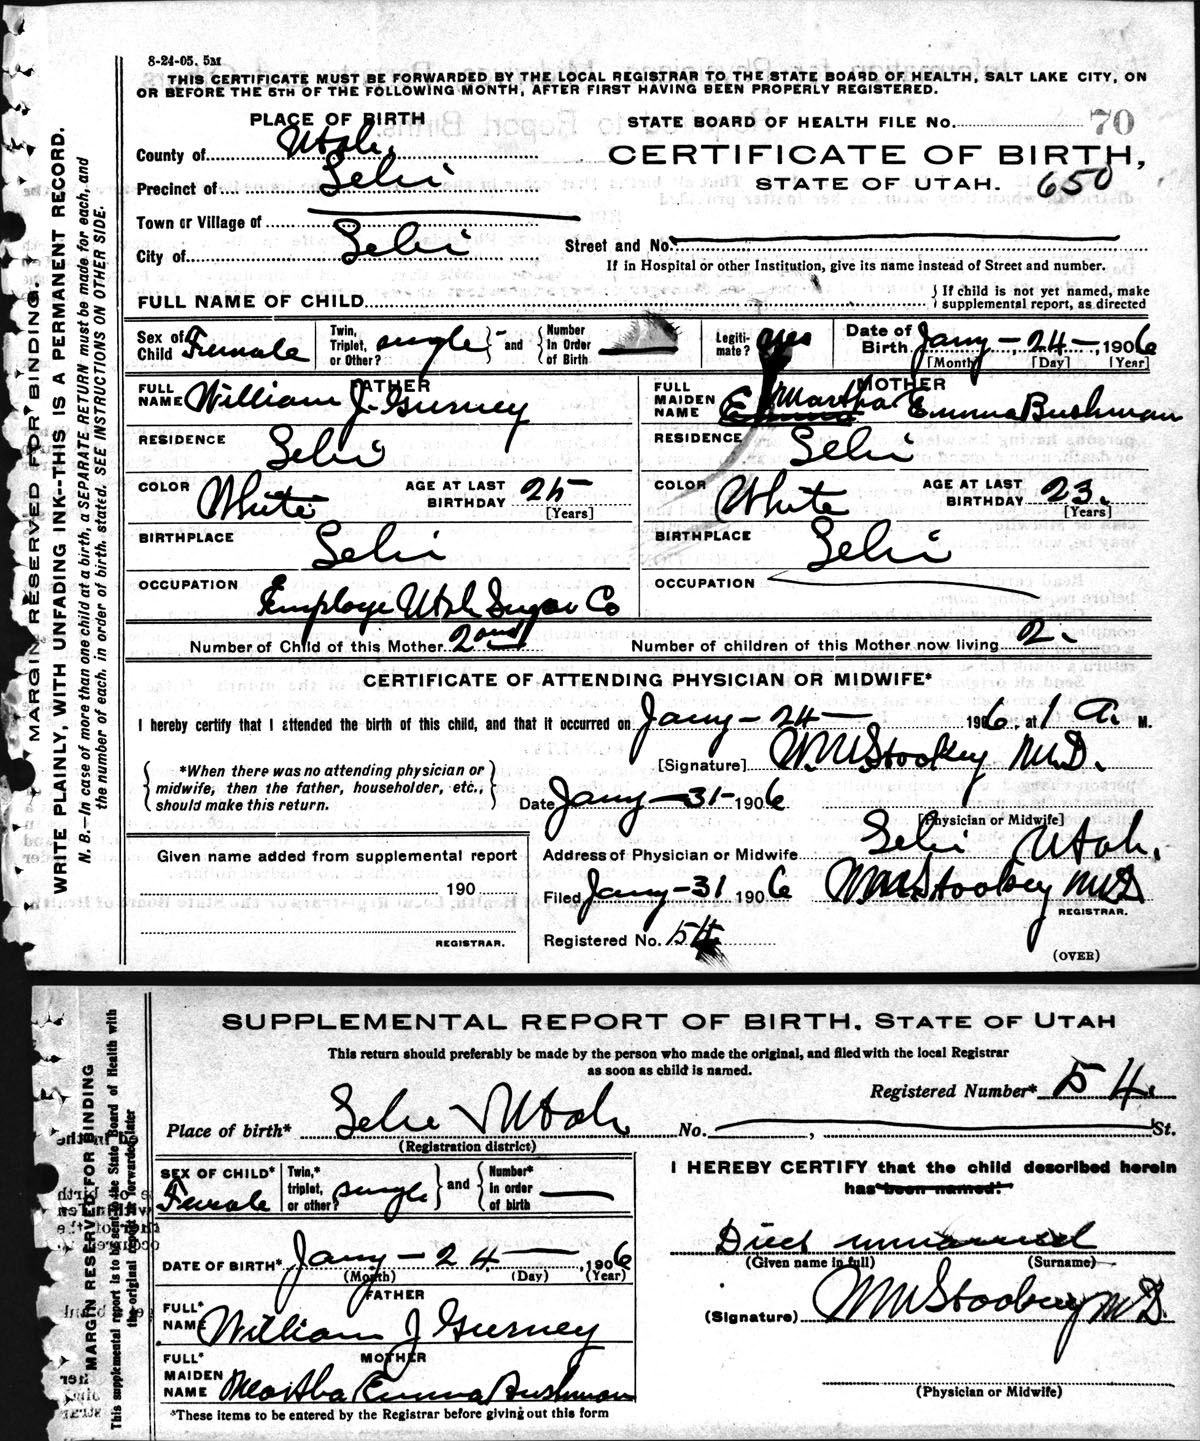 8-24-05. 5M
THIS CERTIFICATE MUST BE FORWARDED BY THE LOCAL REGISTRAR TO THE STATE BOARD OF HEALTH, SALT LAKE CITY, ON
OR BEFORE THE 5TH OF THE FOLLOWING MONTH, AFTER FIRST HAVING BEEN PROPERLY REGISTERED.
PLACE OF BIRTH
County of Utah.
Precinct of Lehi
Town or Village of
City of Lehi
STATE BOARD OF HEALTH FILE No. 70
CERTIFICATE OF BIRTH,
STATE OF UTAH. 650
Street and No.
If in Hospital or other Institution, give its name instead of Street and number.
FULL NAME OF CHILD
{ If child is not yet named, make
supplemental report, as directed
Sex of Child Female
Twin, Triplet, or Other? single } and { Number In Order of Birth
Legiti-mate? yes
Date of Birth Jany - 24 -, 1906
[Month] [Day] [Year]
FATHER
FULL NAME William J. Gurney
RESIDENCE Lehi
COLOR White
AGE AT LAST BIRTHDAY 25
[Years]
BIRTHPLACE Lehi
OCCUPATION Employe Utah Sugar Co
MOTHER
FULL MAIDEN NAME Emma Martha Emma Bushman
RESIDENCE Lehi
COLOR White
AGE AT LAST BIRTHDAY 23.
[Years]
BIRTHPLACE Lehi
OCCUPATION
Number of Child of this Mother 2ond
Number of children of this Mother now living 2.
CERTIFICATE OF ATTENDING PHYSICIAN OR MIDWIFE*
I hereby certify that I attended the birth of this child, and that it occurred on Jany - 24 - 1906, at 1 A. M.
{ *When there was no attending physician or
midwife, then the father, householder, etc.,
should make this return. }
[Signature] W.W. Stookey M.D.
Date Jany - 31 - 1906
[Physician or Midwife]
Given name added from supplemental report
190
REGISTRAR.
Address of Physician or Midwife Lehi Utah.
Filed Jany - 31 1906 W.W. Stookey MD
REGISTRAR.
Registered No. 54
(OVER)
MARGIN RESERVED FOR BINDING.
WRITE PLAINLY, WITH UNFADING INK--THIS IS A PERMANENT RECORD.
N. B.—In case of more than one child at a birth, a SEPARATE RETURN must be made for each, and
the number of each, in order of birth, stated. SEE INSTRUCTIONS ON OTHER SIDE.
SUPPLEMENTAL REPORT OF BIRTH. STATE OF UTAH
This return should preferably be made by the person who made the original, and filed with the local Registrar
as soon as child is named.
Registered Number* 54.
Place of birth* Lehi Utah No. , St.
(Registration district)
SEX OF CHILD* Female
Twin,* triplet, or other? single } and { Number* in order of birth
DATE OF BIRTH* Jany - 24 - , 1906
(Month) (Day) (Year)
FATHER
FULL* NAME William J Gurney
MOTHER
FULL* MAIDEN NAME Martha Emma Bushman
*These items to be entered by the Registrar before giving out this form
I HEREBY CERTIFY that the child described herein
has been named:
Died unnamed
(Given name in full) (Surname)
(Signature) W W Stookey MD.
(Physician or Midwife)
MARGIN RESERVED FOR BINDING
This supplemental report is to be sent to the State Board of Health with
the original report if forwarded later